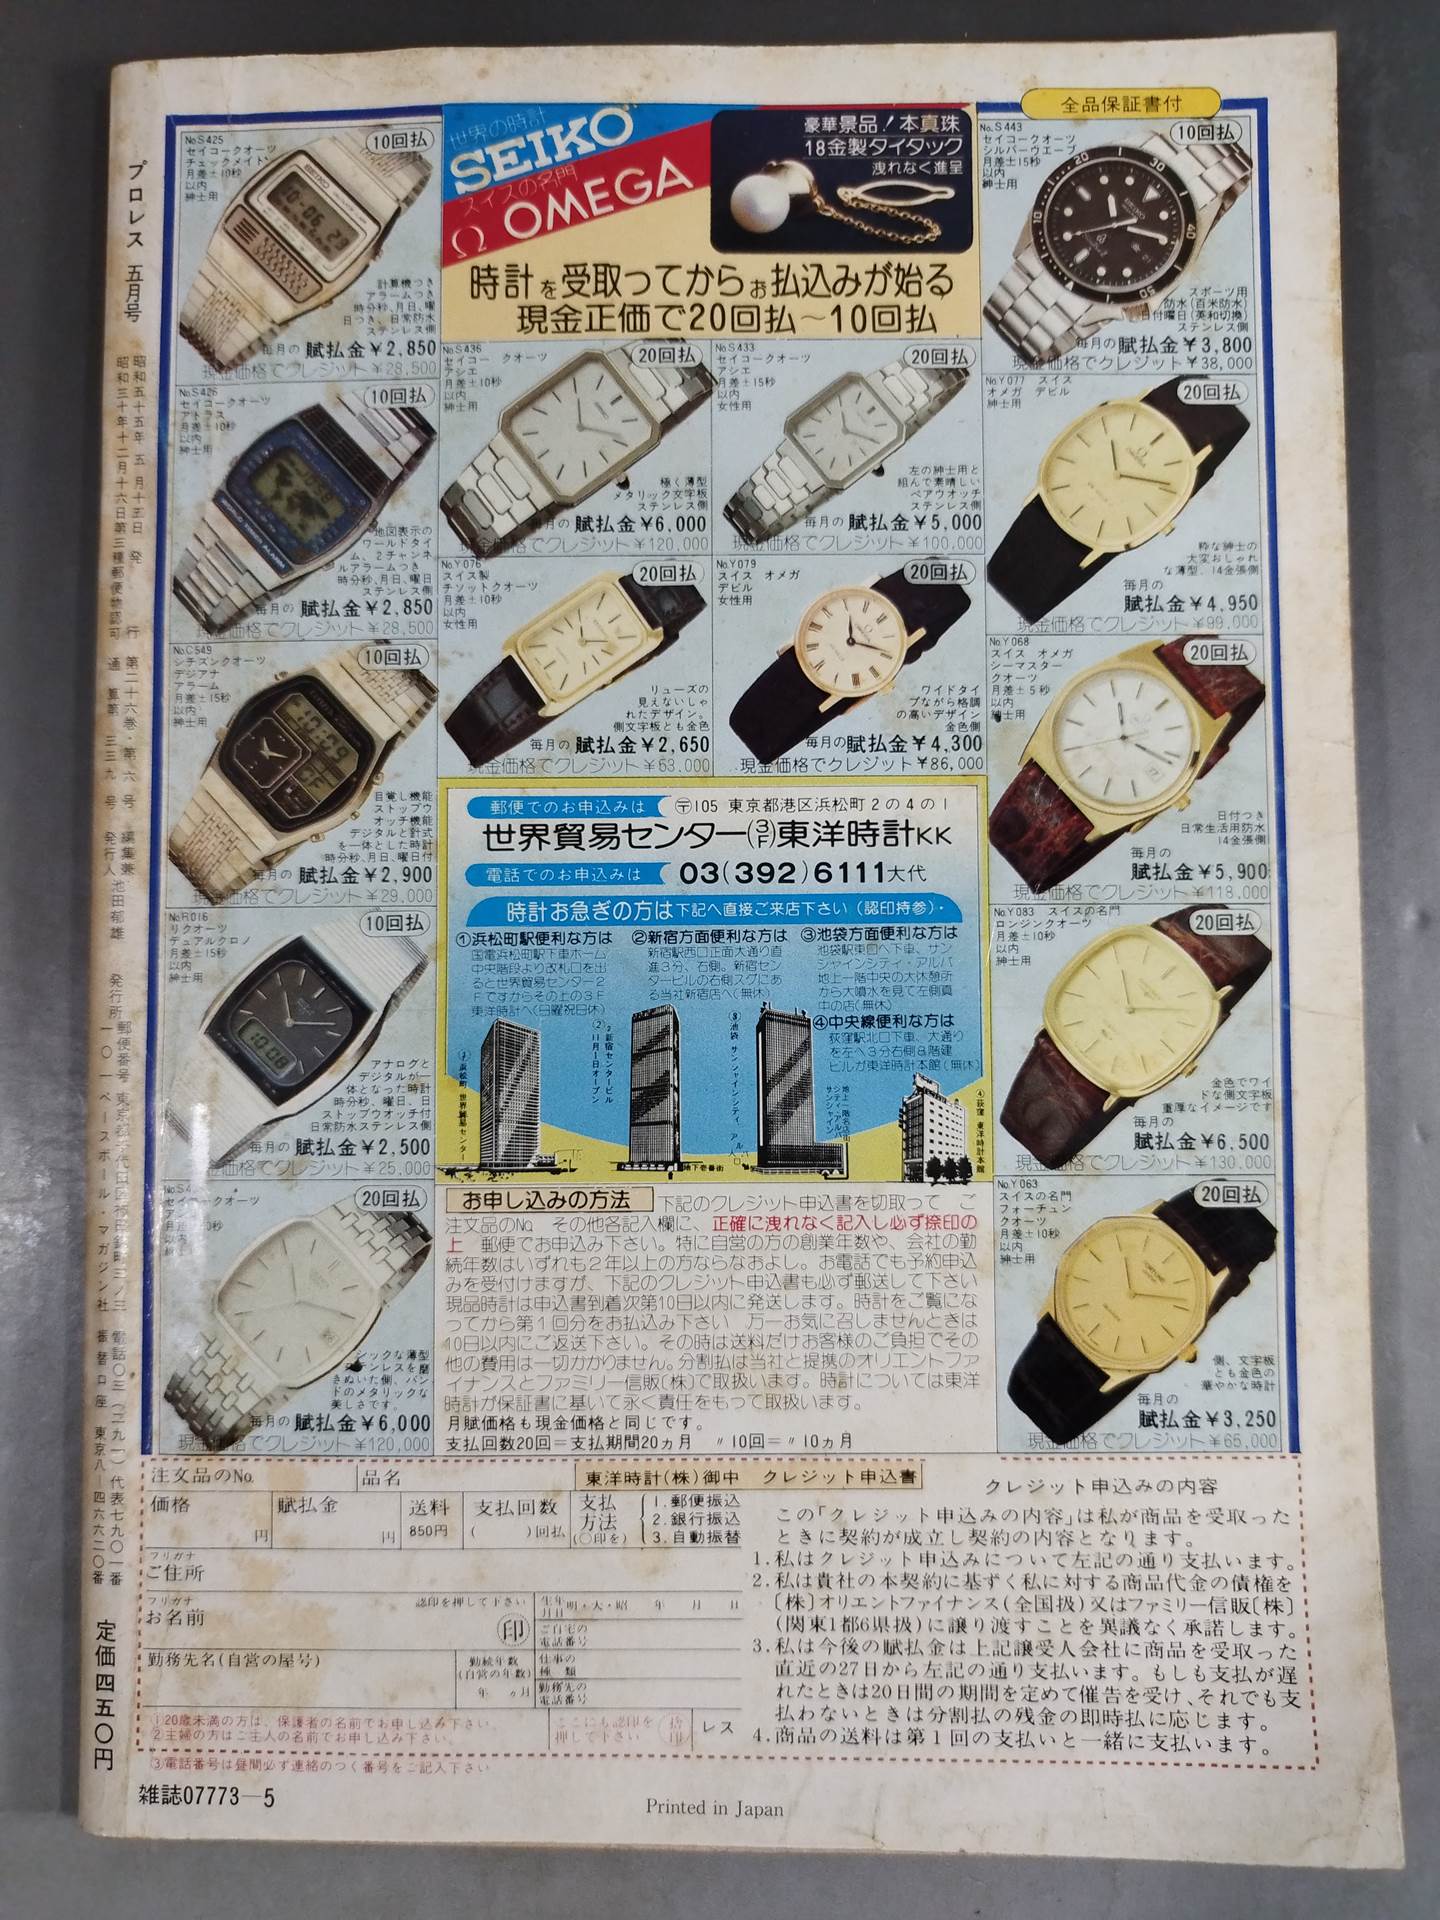 全品保証書付
世界の時計
SEIKO
スイスの名門
Ω OMEGA
豪華景品！本真珠
18金製タイタック
洩れなく進呈
時計を受取ってからお払込みが始る
現金正価で20回払～10回払
No.S425
セイコークオーツ
チェックメイト
月差±10秒
以内
紳士用
10回払
計算機つき
アラームつき
時分秒、月日、曜
日つき、日常防水
ステンレス側
毎月の 賦払金￥2,850
現金価格でクレジット￥28,500
No.S426
セイコークオーツ
アトラス
月差±10秒
以内
紳士用
10回払
地図表示の
ワールドタイ
ム、2チャンネ
ルアラームつき
時分秒、月日、曜日
ステンレス側
毎月の 賦払金￥2,850
現金価格でクレジット￥28,500
No.C549
シチズンクオーツ
デジアナ
アラーム
月差±15秒
紳士用
10回払
目覚し機能
ストップウ
オッチ機能
デジタルと針式
を一体とした時計
時分秒、月日、曜日付
毎月の 賦払金￥2,900
現金価格でクレジット￥29,000
No.R016
リクオーツ
デュアルクロノ
月差±15秒
以内
紳士用
10回払
アナログと
デジタルが一
体となった時計
時分秒、曜日、日
ストップウオッチ付
日常防水ステンレス側
毎月の 賦払金￥2,500
現金価格でクレジット￥25,000
セイコークオーツ
20回払
シックな薄型
ステンレスを磨
きぬいた側、バン
ドのメタリックな
美しさです。
毎月の 賦払金￥6,000
現金価格でクレジット￥120,000
No.S436
セイコー クオーツ
アシエ
月差±10秒
以内
紳士用
20回払
極く薄型
メタリック文字板
ステンレス側
毎月の 賦払金￥6,000
現金価格でクレジット￥120,000
No.S433
セイコークオーツ
アシエ
月差±15秒
以内
女性用
20回払
左の紳士用と
組んで素晴しい
ペアウオッチ
ステンレス側
毎月の 賦払金￥5,000
現金価格でクレジット￥100,000
No.Y076
スイス製
チソットクオーツ
月差±10秒
以内
女性用
20回払
リューズの
見えないしゃ
れたデザイン。
側文字板とも金色
毎月の 賦払金￥2,650
現金価格でクレジット￥53,000
No.Y079
スイス オメガ
デビル
女性用
20回払
ワイドタイ
プながら格調
の高いデザイン
金色側
毎月の賦払金￥4,300
現金価格でクレジット￥86,000
No.S443
セイコークオーツ
シルバーウエーブ
月差±15秒
以内
紳士用
10回払
スポーツ用
防水(百米防水)
日付曜日(英和切換)
ステンレス側
毎月の 賦払金￥3,800
現金価格でクレジット￥38,000
No.Y077 スイス
オメガ デビル
紳士用
20回払
粋な紳士の
大変おしゃれ
な薄型、14金張側
毎月の
賦払金￥4,950
現金価格でクレジット￥99,000
No.Y068
スイス オメガ
シーマスター
クオーツ
月差±5秒
以内
紳士用
20回払
日付つき
日常生活用防水
14金張側
毎月の
賦払金￥5,900
現金価格でクレジット￥118,000
No.Y083 スイスの名門
ロンジンクオーツ
月差±10秒
以内
紳士用
20回払
金色でワイ
ドな側文字板
重厚なイメージです
毎月の
賦払金￥6,500
現金価格でクレジット￥130,000
No.Y063
スイスの名門
フォーチュン
クオーツ
月差±10秒
以内
紳士用
20回払
側、文字板
とも金色の
華やかな時計
毎月の
賦払金￥3,250
現金価格でクレジット￥65,000
郵便でのお申込みは 〒105 東京都港区浜松町2の4の1
世界貿易センター(3F)東洋時計KK
電話でのお申込みは 03(392)6111大代
時計お急ぎの方は下記へ直接ご来店下さい(認印持参)・
①浜松町駅便利な方は
国電浜松町駅下車ホーム
中央階段より改札口を出
ると世界貿易センター2
FですからそのLの3F
東洋時計へ(日曜祝日休)
②新宿方面便利な方は
新宿駅西口正面大通り直
進3分、右側。新宿セン
タービルの右側スグにあ
る当社新宿店へ(無休)
③池袋方面便利な方は
池袋駅東口へ下車、サン
シャインシティ・アルパ
地上一階中央の大休憩所
から大噴水を見て左側真
中の店(無休)
④中央線便利な方は
荻窪駅北口下車、大通り
を左へ3分右側8階建
ビルが東洋時計本館(無休)
①浜松町 世界貿易センター
②新宿センタービル
11月1日オープン
地下壱番街
③池袋 サンシャインシティ、アルパ
④荻窪 東洋時計本館
お申し込みの方法 下記のクレジット申込書を切取って ご
注文品のNo. その他各記入欄に、正確に洩れなく記入し必ず捺印の
上 郵便でお申込み下さい。特に自営の方の創業年数や、会社の勤
続年数はいずれも2年以上の方ならなおよし。お電話でも予約申込
みを受付けますが、下記のクレジット申込書も必ず郵送して下さい
現品時計は申込書到着次第10日以内に発送します。時計をご覧にな
ってから第1回分をお払込み下さい 万一お気に召しませんときは
10日以内にご返送下さい。その時は送料だけお客様のご負担でその
他の費用は一切かかりません。分割払は当社と提携のオリエントファ
イナンスとファミリー信販〔株〕で取扱います。時計については東洋
時計が保証書に基いて永く責任をもって取扱います。
月賦価格も現金価格と同じです。
支払回数20回＝支払期間20ヵ月 〃10回＝〃10ヵ月
注文品のNo.
品名
東洋時計(株)御中 クレジット申込書
価格 円
賦払金 円
送料 850円
支払回数 ( )回払
支払方法 (○印を)
1.郵便振込
2.銀行振込
3.自動振替
フリガナ
ご住所
フリガナ
お名前
認印を押して下さい
印
生年月日 明・大・昭 年 月 日
ご自宅の電話番号
勤務先名(自営の屋号)
勤続年数(自営の年数)
年 ヵ月
仕事の種類
勤務先の電話番号
①20歳未満の方は、保護者の名前でお申し込み下さい
②主婦の方はご主人の名前でお申し込み下さい。
③電話番号は昼間必ず連絡のつく番号をご記入下さい
ここにも認印を押して下さい
捨印
レス
クレジット申込みの内容
この「クレジット申込みの内容」は私が商品を受取った
ときに契約が成立し契約の内容となります。
1.私はクレジット申込みについて左記の通り支払います。
2.私は貴社の本契約に基ずく私に対する商品代金の債権を
〔株〕オリエントファイナンス(全国扱)又はファミリー信販〔株〕
(関東1都6県扱)に譲り渡すことを異議なく承諾します。
3.私は今後の賦払金は上記譲受人会社に商品を受取った
直近の27日から左記の通り支払います。もしも支払が遅
れたときは20日間の期間を定めて催告を受け、それでも支
払わないときは分割払の残金の即時払に応じます。
4.商品の送料は第1回の支払いと一緒に支払います。
プロレス 五月号
昭和五十五年 五 月十五日 発 行 第二十六巻・第六号 編集兼
昭和三十年十二月十六日第三種郵便物認可 通算第 三三九 号 発行人 池田郁雄
発行所 郵便番号 東京都千代田区神田錦町三ノ三 電話〇三(二九一)代表七九〇一番
一〇一 ベースボール・マガジン社 振替口座 東京八―四六六二〇番
定価四五〇円
雑誌07773―5
Printed in Japan